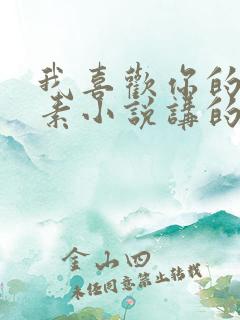 我喜歡你的
素小説講的
金山四
未经同意禁止转载